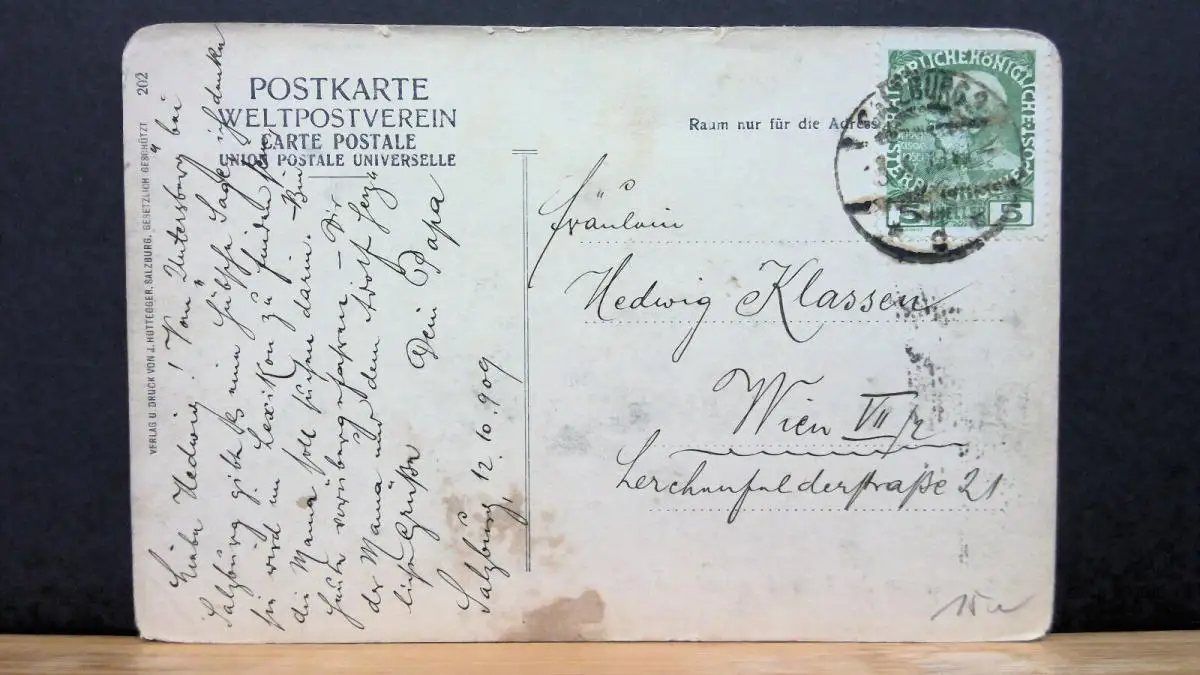 202
VERLAG U. DRUCK VON J. HUTTEGGER, SALZBURG, GESETZLICH GESCHÜTZT
POSTKARTE
WELTPOSTVEREIN
CARTE POSTALE
UNION POSTALE UNIVERSELLE
Liebe Hedwig! Vom Untersberg bei
Salzburg gibt es eine hübsche Sage ich denke
sie wird im Lexikon zu finden sein
die Mama soll suchen darin. – Bin
heute vorüberg'fahren – Dir
der Mama und dem Adolf herz-
liche Grüße Dein Papa
Salzburg, 12.10.909
Raum nur für die Adresse
SALZBURG 2
5 5
Fräulein
Hedwig Klassen
Wien VII/2
Lerchenfelderstraße 21